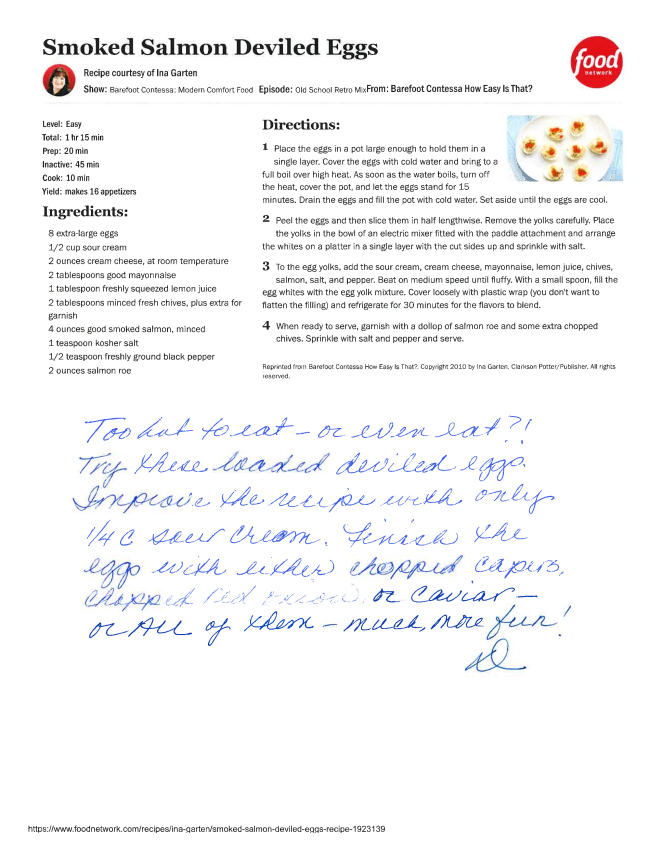 Smoked Salmon Deviled Eggs
food
network
Recipe courtesy of Ina Garten
Show: Barefoot Contessa: Modern Comfort Food Episode: Old School Retro MixFrom: Barefoot Contessa How Easy Is That?
Level: Easy
Total: 1 hr 15 min
Prep: 20 min
Inactive: 45 min
Cook: 10 min
Yield: makes 16 appetizers
Ingredients:
8 extra-large eggs
1/2 cup sour cream
2 ounces cream cheese, at room temperature
2 tablespoons good mayonnaise
1 tablespoon freshly squeezed lemon juice
2 tablespoons minced fresh chives, plus extra for
garnish
4 ounces good smoked salmon, minced
1 teaspoon kosher salt
1/2 teaspoon freshly ground black pepper
2 ounces salmon roe
Directions:
1 Place the eggs in a pot large enough to hold them in a
single layer. Cover the eggs with cold water and bring to a
full boil over high heat. As soon as the water boils, turn off
the heat, cover the pot, and let the eggs stand for 15
minutes. Drain the eggs and fill the pot with cold water. Set aside until the eggs are cool.
2 Peel the eggs and then slice them in half lengthwise. Remove the yolks carefully. Place
the yolks in the bowl of an electric mixer fitted with the paddle attachment and arrange
the whites on a platter in a single layer with the cut sides up and sprinkle with salt.
3 To the egg yolks, add the sour cream, cream cheese, mayonnaise, lemon juice, chives,
salmon, salt, and pepper. Beat on medium speed until fluffy. With a small spoon, fill the
egg whites with the egg yolk mixture. Cover loosely with plastic wrap (you don't want to
flatten the filling) and refrigerate for 30 minutes for the flavors to blend.
4 When ready to serve, garnish with a dollop of salmon roe and some extra chopped
chives. Sprinkle with salt and pepper and serve.
Reprinted from Barefoot Contessa How Easy Is That?. Copyright 2010 by Ina Garten, Clarkson Potter/Publisher, All rights
reserved.
Too hot to eat – or even eat?!
Try these loaded deviled eggs.
Improve the recipe with only
1/4 C sour cream. Finish the
eggs with either chopped capers,
chopped red onion, or caviar –
or All of them – much, more fun!
https://www.foodnetwork.com/recipes/ina-garten/smoked-salmon-deviled-eggs-recipe-1923139